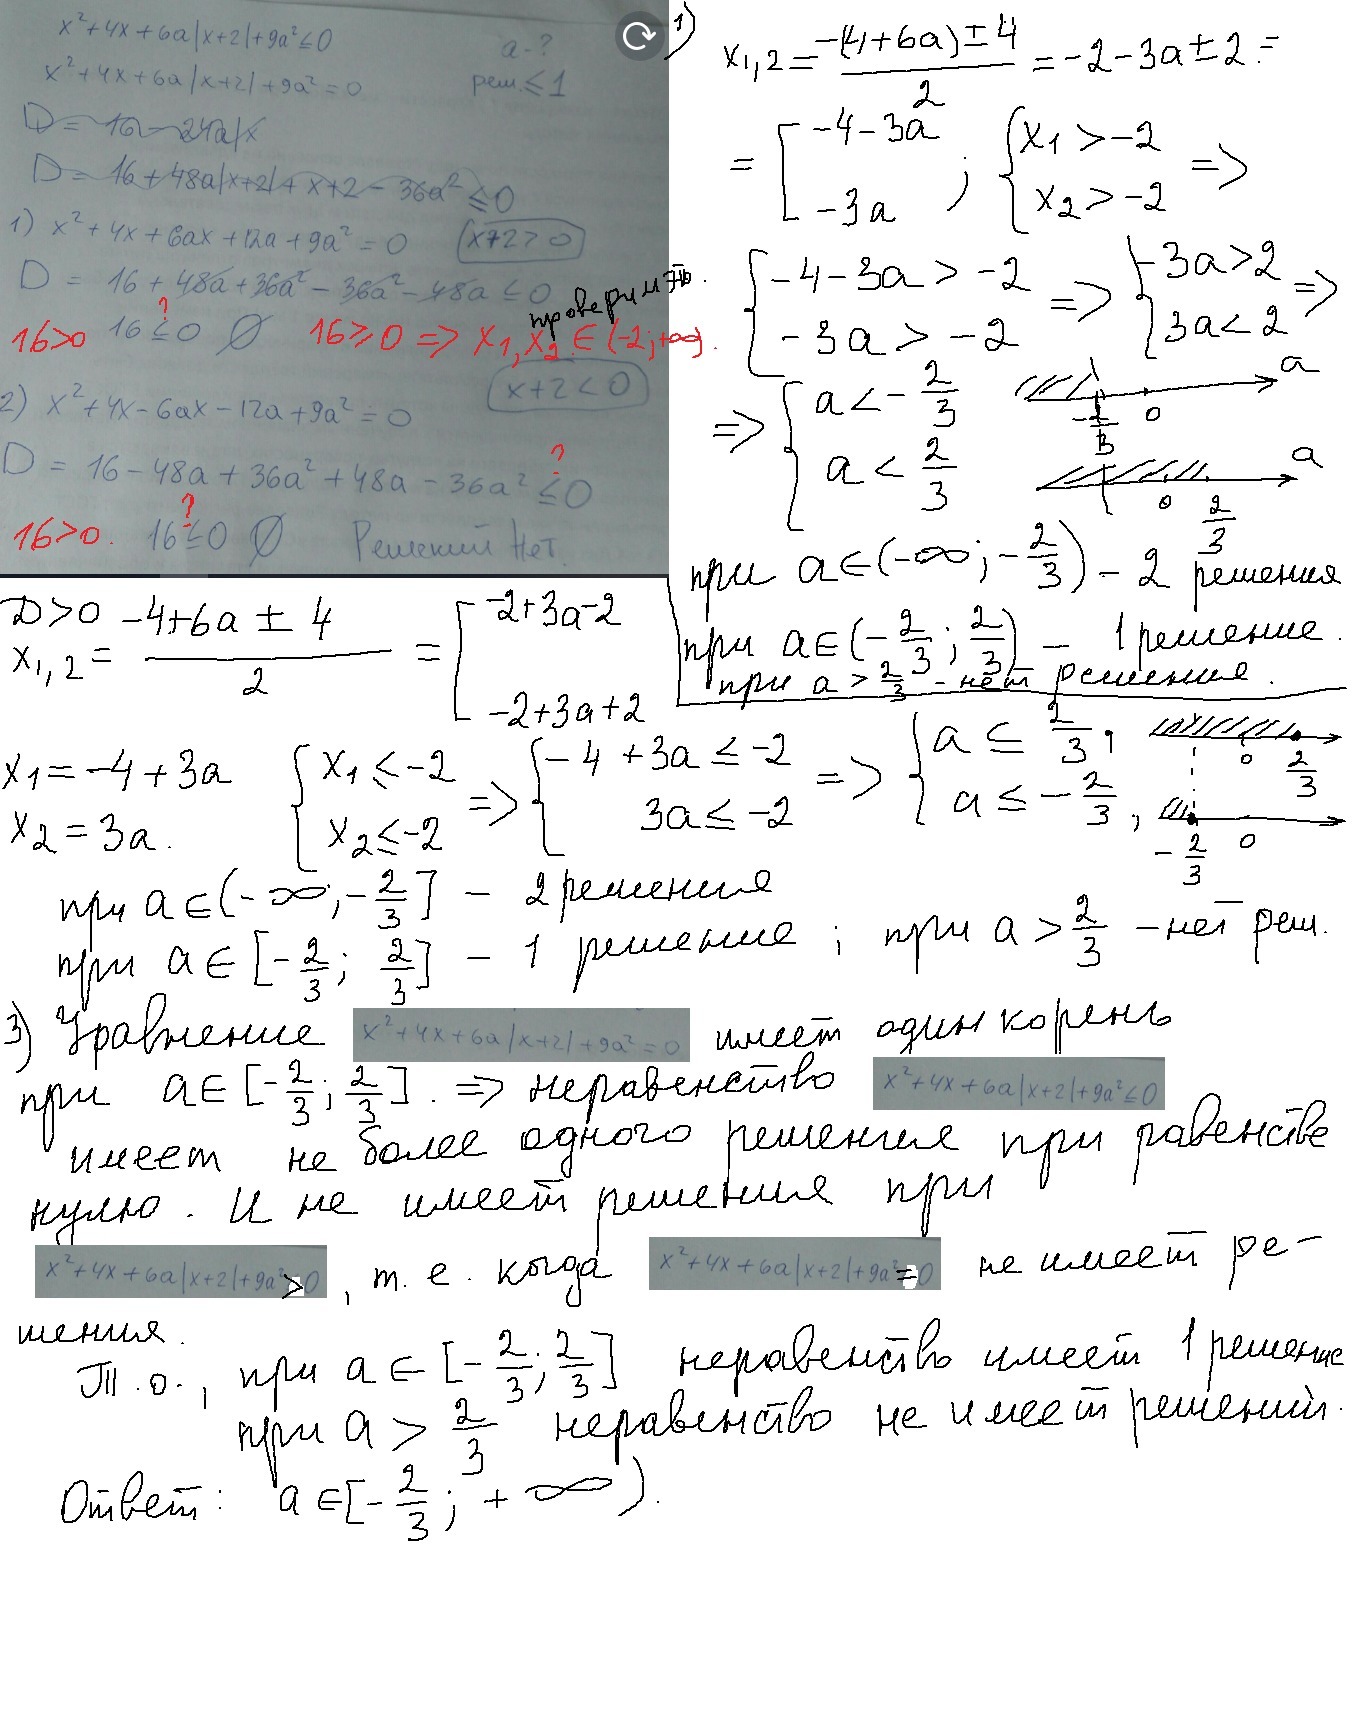 x²+4x+6a|x+2|+9a²≤0
a-?
x²+4x+6a|x+2|+9a²=0
реш.≤1
D = 16 - 24a|x
D = 16+48a|x+2|+x+2-36a² ≤0
1) x²+4x+6ax+12a+9a²=0 x+2>0
D = 16+48a+36a²-36a²-48a ≤0
проверим это.
16>0 16≤0 ∅ 16≥0 => x₁,x₂∈(-2;+∞).
?
x+2<0
2) x²+4x-6ax-12a+9a²=0
D = 16-48a+36a²+48a-36a² ≤0
?
16>0. 16≤0 ∅ Решений нет.
?
1)
x₁,₂ = (-(4+6a)±4)/2 = -2-3a±2 =
= [-4-3a; -3a ; {x₁>-2; x₂>-2 =>
{-4-3a>-2; -3a>-2 => {-3a>2; 3a<2 =>
=> {a<-2/3; a<2/3
-2/3 0 a
0 2/3 a
при a∈(-∞;-2/3) - 2 решения
при a∈(-2/3;2/3) - 1 решение.
при a>2/3 - нет решения.
D>0
x₁,₂ = (-4+6a±4)/2 = [-2+3a-2; -2+3a+2
x₁=-4+3a
x₂=3a.
{x₁≤-2; x₂≤-2 => {-4+3a≤-2; 3a≤-2 => {a≤2/3, a≤-2/3,
0 2/3
-2/3 0
при a∈(-∞;-2/3] - 2 решения
при a∈[-2/3; 2/3] - 1 решение ; при a>2/3 - нет реш.
3) Уравнение x²+4x+6a|x+2|+9a²=0 имеет один корень
при a∈[-2/3;2/3]. => неравенство x²+4x+6a|x+2|+9a²≤0
имеет не более одного решения при равенстве
нулю. И не имеет решения при
x²+4x+6a|x+2|+9a²>0 , т.е. когда x²+4x+6a|x+2|+9a²=0 не имеет ре-
шения.
Т.о., при a∈[-2/3;2/3] неравенство имеет 1 решение
при a>2/3 неравенство не имеет решений.
Ответ: a∈[-2/3;+∞).